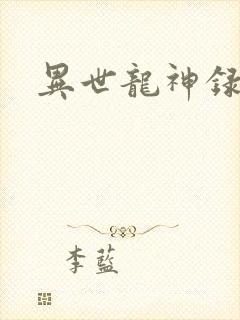 異世龍神録
李藍